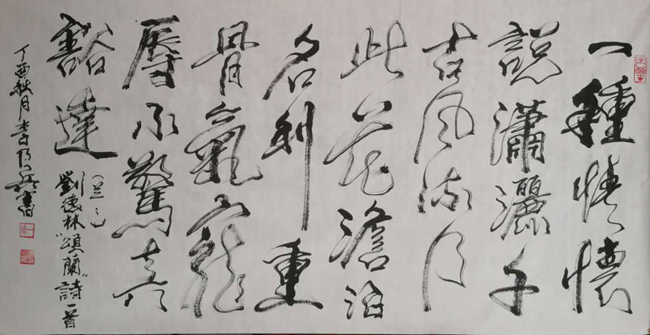 一種情懷
說瀟灑千
古風流
此花澹泊
名利重
骨氣寵
辱不驚真
豁達
劉 林"頌蘭"詩一首
丁酉秋月李乃 書